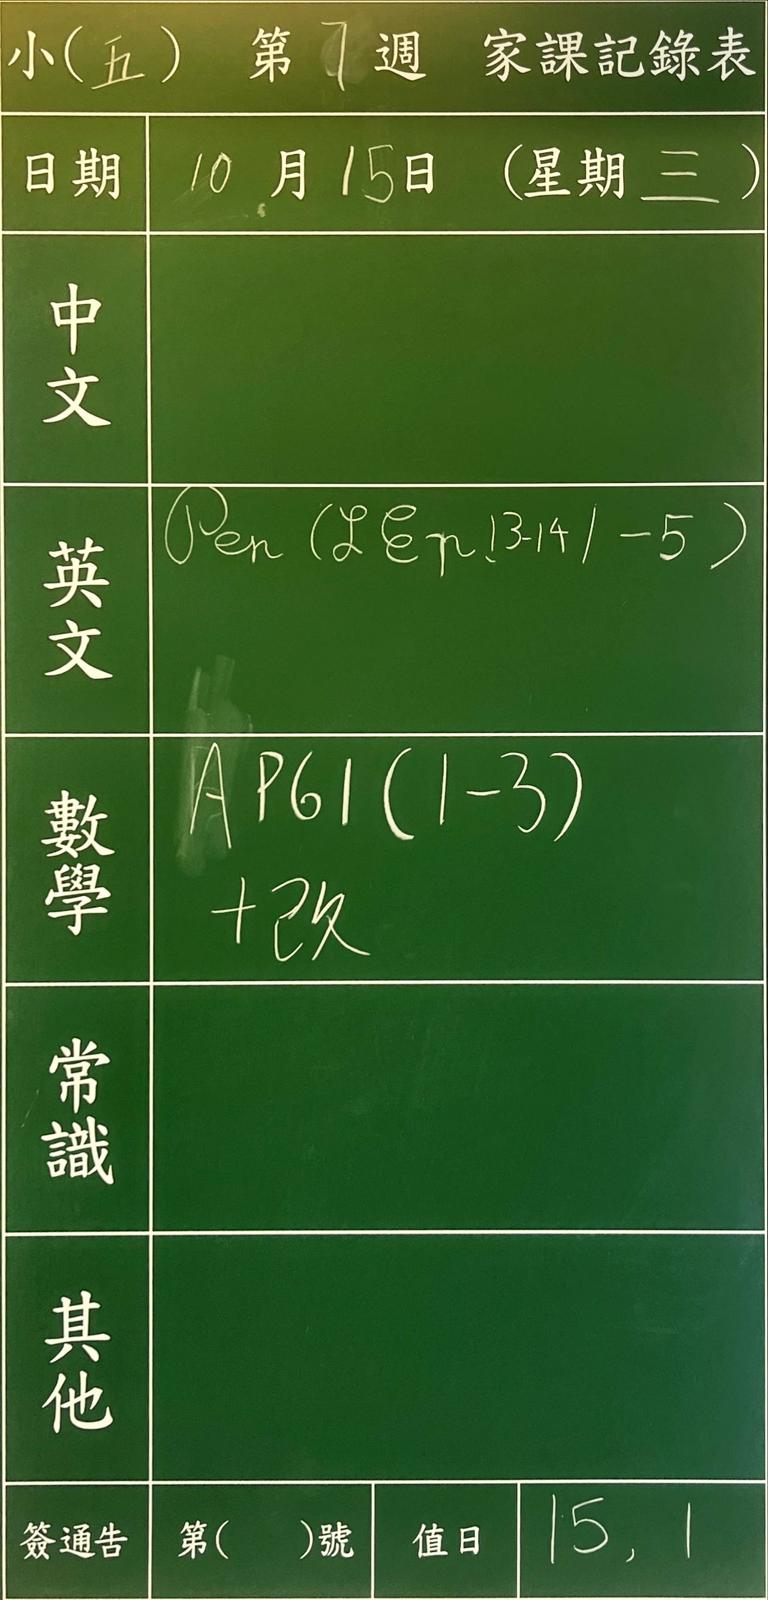 小(五) 第7週 家課記錄表
日期 10月15日 (星期三)
中文
英文 Pen (LE p.13-14 1-5)
數學 A P61(1-3)
+改
常識
其他
簽通告 第( )號 值日 15, 1